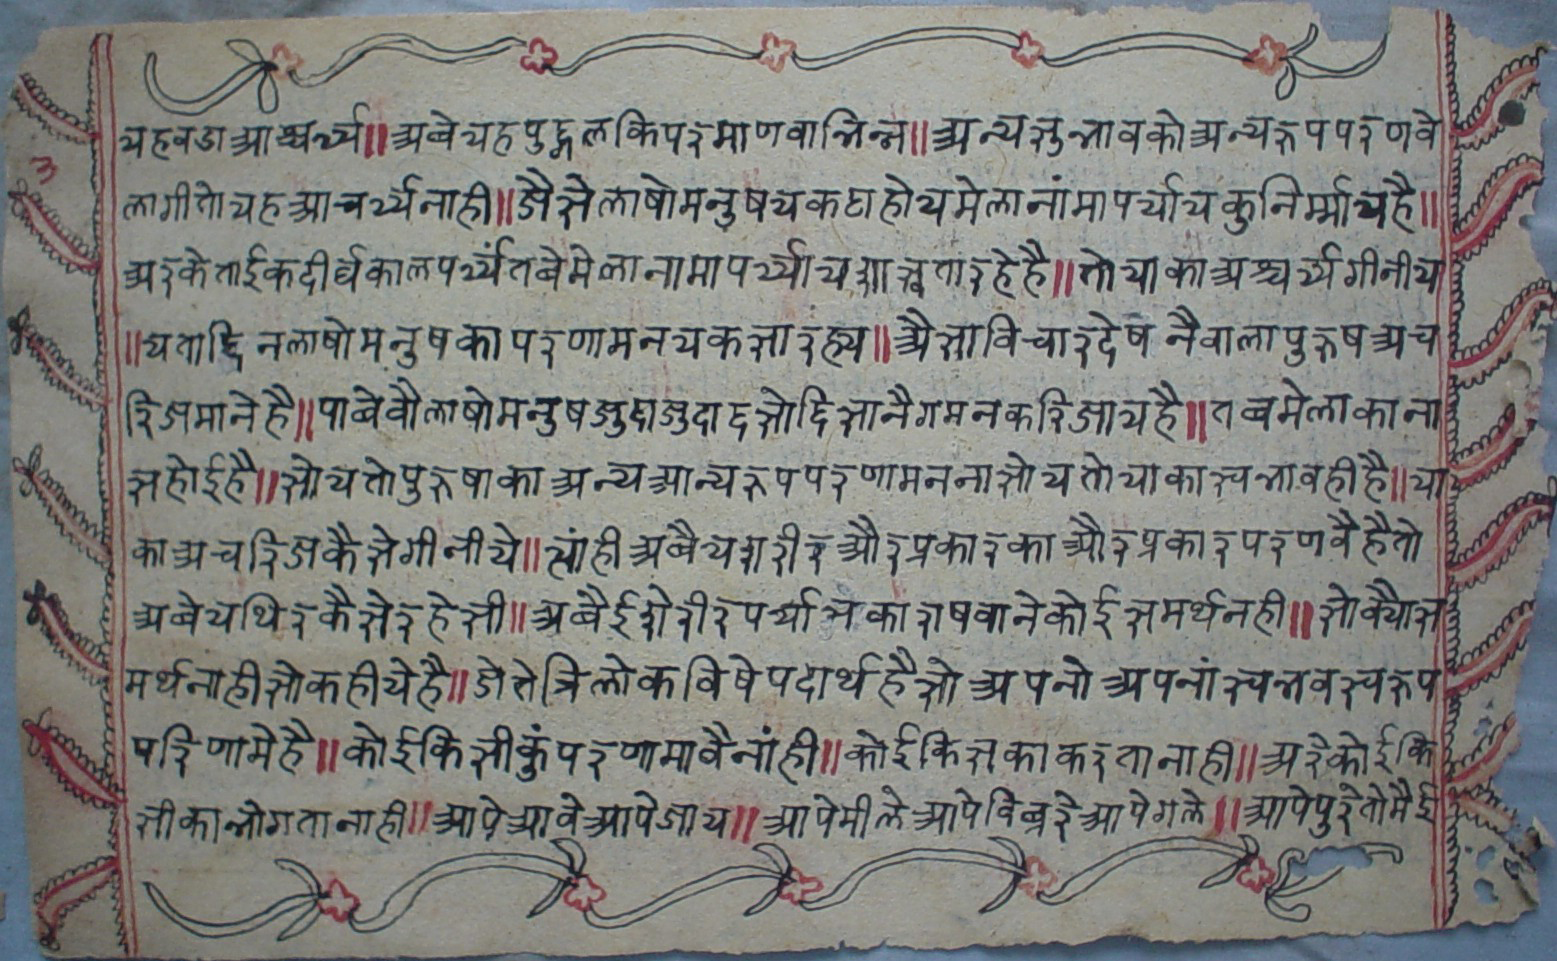 यहबडाआश्चर्य्य॥अबेयहपुद्गलकिपरमाणवाभिन्न॥अन्यसुभावकोअन्यरुपपरणवे
३
लागीतोयहआचर्य्यनाही॥जैसेलाषोमनुषयकठाहोयमेलानांमापर्यायकुनिर्म्मायहै॥
अरकेताईकदीर्घकालपर्य्यंतबेमेलानामापर्य्यायशास्वतारहेहै॥तोयाकाअश्चर्य्यगीनीया
॥यतादिनलाषोमनुषकापरणामनयकसारह्य॥अैसाविचारदेषनैवालापुरुषअच
रिजमानेहै॥पाबेवौलाषोमनुषजुदाजुदादसोदिसानैगमनकरिजायहै॥तब्बमेलाकाना
सहोईहै॥सोयतोपुरुषाकाअन्यआन्यरुपपरणामननासोयतोयाकास्वभावहीहै॥या
काअचरिजकैसेगीनीये॥त्यांहीअबैयशरीरऔरप्रकारकाऔरप्रकारपरणवैहैतो
अबेयथिरकैसेरहेसी॥अबैईशेरीरपर्यायकाराषवानेकोईसमर्थनही॥सोक्यौस
मर्थनाहीसोकहीयेहै॥जेतेत्रिलोकविषेपदार्थहैसोअपनोअपनांस्वभवस्वरुप
परिणामेहै॥कोईकिसीकुंपरणामावैनांही॥कोईकिसकाकरतानाही॥अरेकोईकि
सीकाभोगतानाही॥आपेआवेआपेजाय॥आपेमीलेआपेविबुरेआपेगले॥आपेपुरेतोमैई